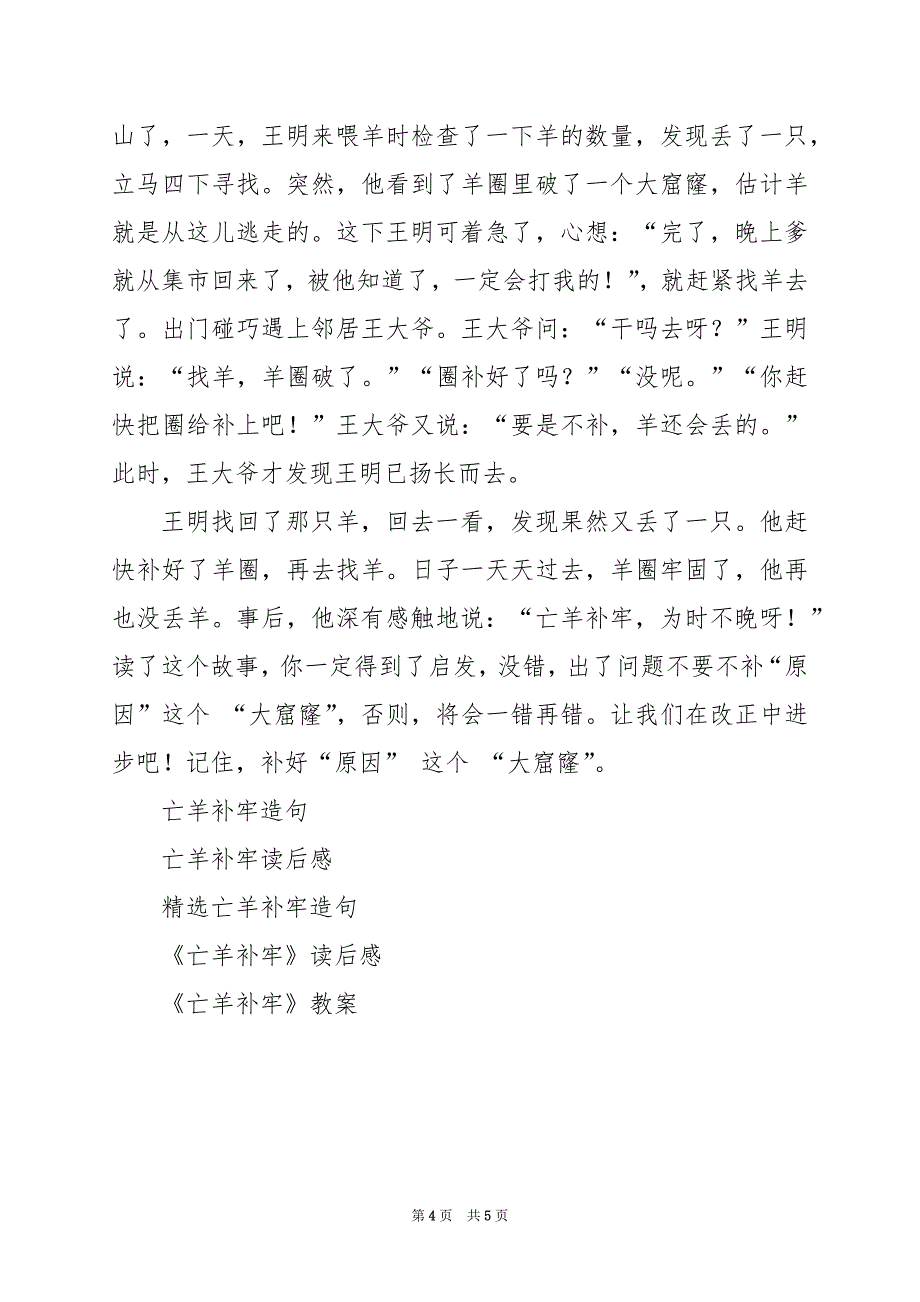 山了，一天，王明来喂羊时检查了一下羊的数量，发现丢了一只，
立马四下寻找。突然，他看到了羊圈里破了一个大窟窿，估计羊
就是从这儿逃走的。这下王明可着急了，心想：“完了，晚上爹
就从集市回来了，被他知道了，一定会打我的！”，就赶紧找羊去
了。出门碰巧遇上邻居王大爷。王大爷问：“干吗去呀？”王明
说：“找羊，羊圈破了。”“圈补好了吗？”“没呢。”“你赶
快把圈给补上吧！”王大爷又说：“要是不补，羊还会丢的。”
此时，王大爷才发现王明已扬长而去。
王明找回了那只羊，回去一看，发现果然又丢了一只。他赶
快补好了羊圈，再去找羊。日子一天天过去，羊圈牢固了，他再
也没丢羊。事后，他深有感触地说：“亡羊补牢，为时不晚呀！”
读了这个故事，你一定得到了启发，没错，出了问题不要不补“原
因”这个 “大窟窿”，否则，将会一错再错。让我们在改正中进
步吧！记住，补好“原因” 这个 “大窟窿”。
亡羊补牢造句
亡羊补牢读后感
精选亡羊补牢造句
《亡羊补牢》读后感
《亡羊补牢》教案
第 4 页 共 5 页